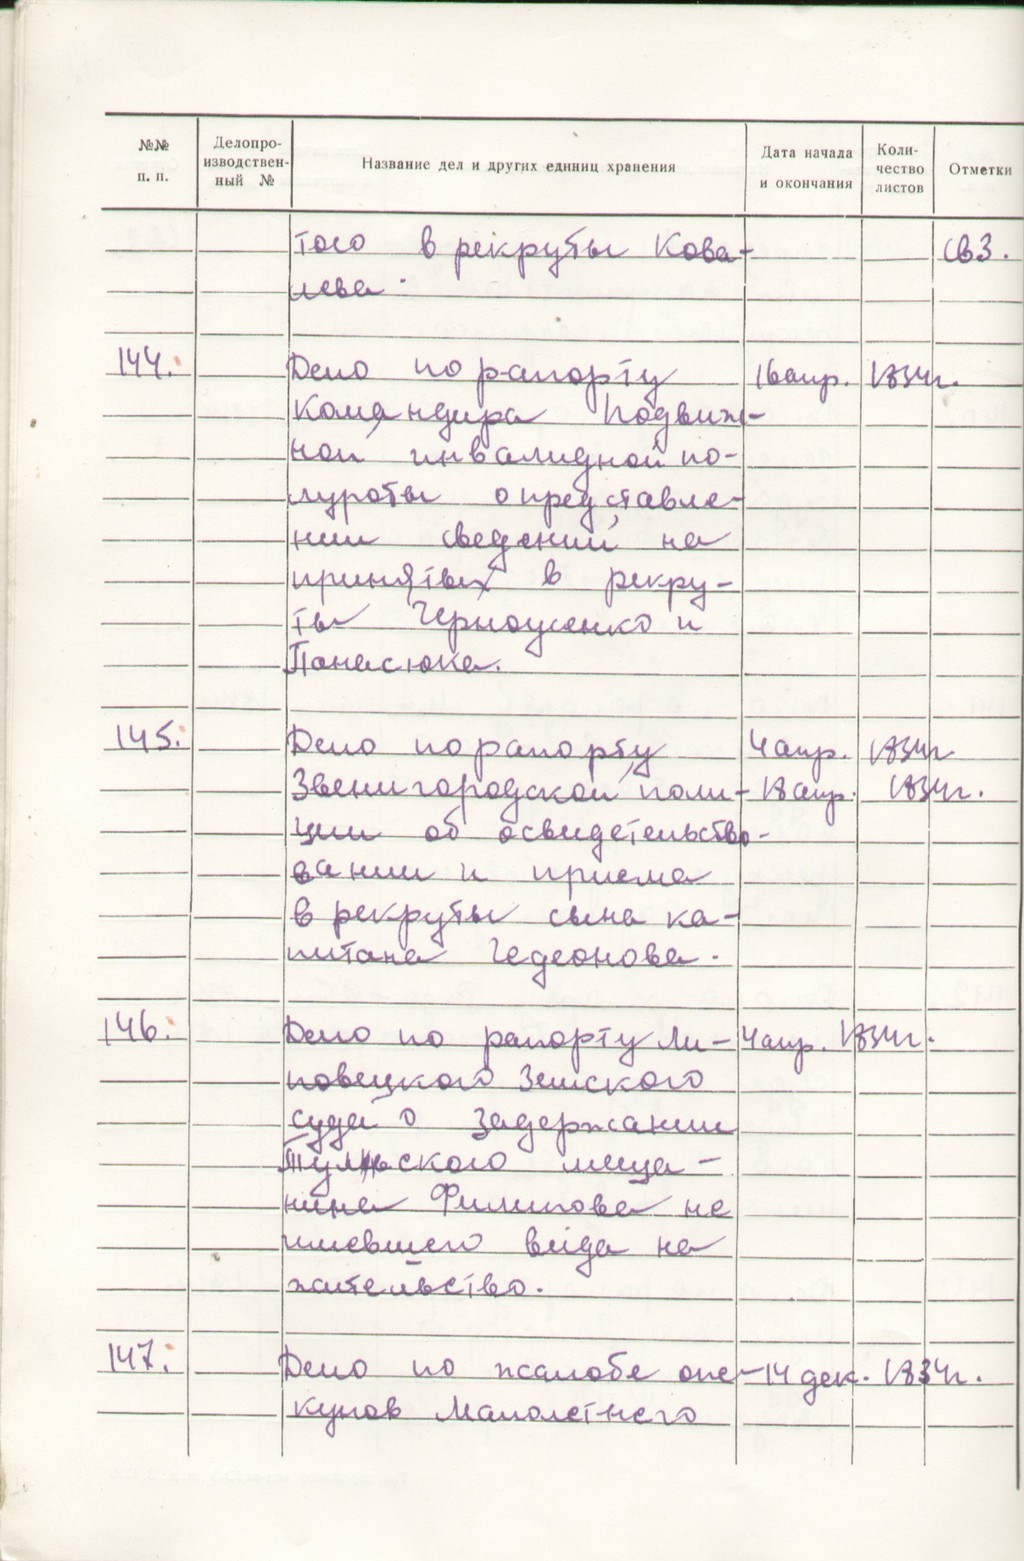 №№ п. п. Делопроизводственный № Название дел и других единиц хранения Дата начала и окончания Количество листов Отметки
того в рекруты Кова- св3.
лева.
144. Дело по рапорту 16 апр. 1834г.
Командира Подвиж-
ной инвалидной по-
луроты о представле-
нии сведений на
принятых в рекру-
ты Черноусенко и
Панасюка.
145. Дело по рапорту 4 апр. 1834г
Звенигородской поли- 18 апр. 1834г.
ции об освидетельство-
вании и приема
в рекруты сына ка-
питана Гедеонова.
146. Дело по рапорту Ли- 4 апр. 1834г.
повецкого Земского
суда о задержании
Тульского меща-
нина Филипова не
имевшего вида на
жительство.
147. Дело по жалобе опе- 14 дек. 1834г.
кунов Малолетнего